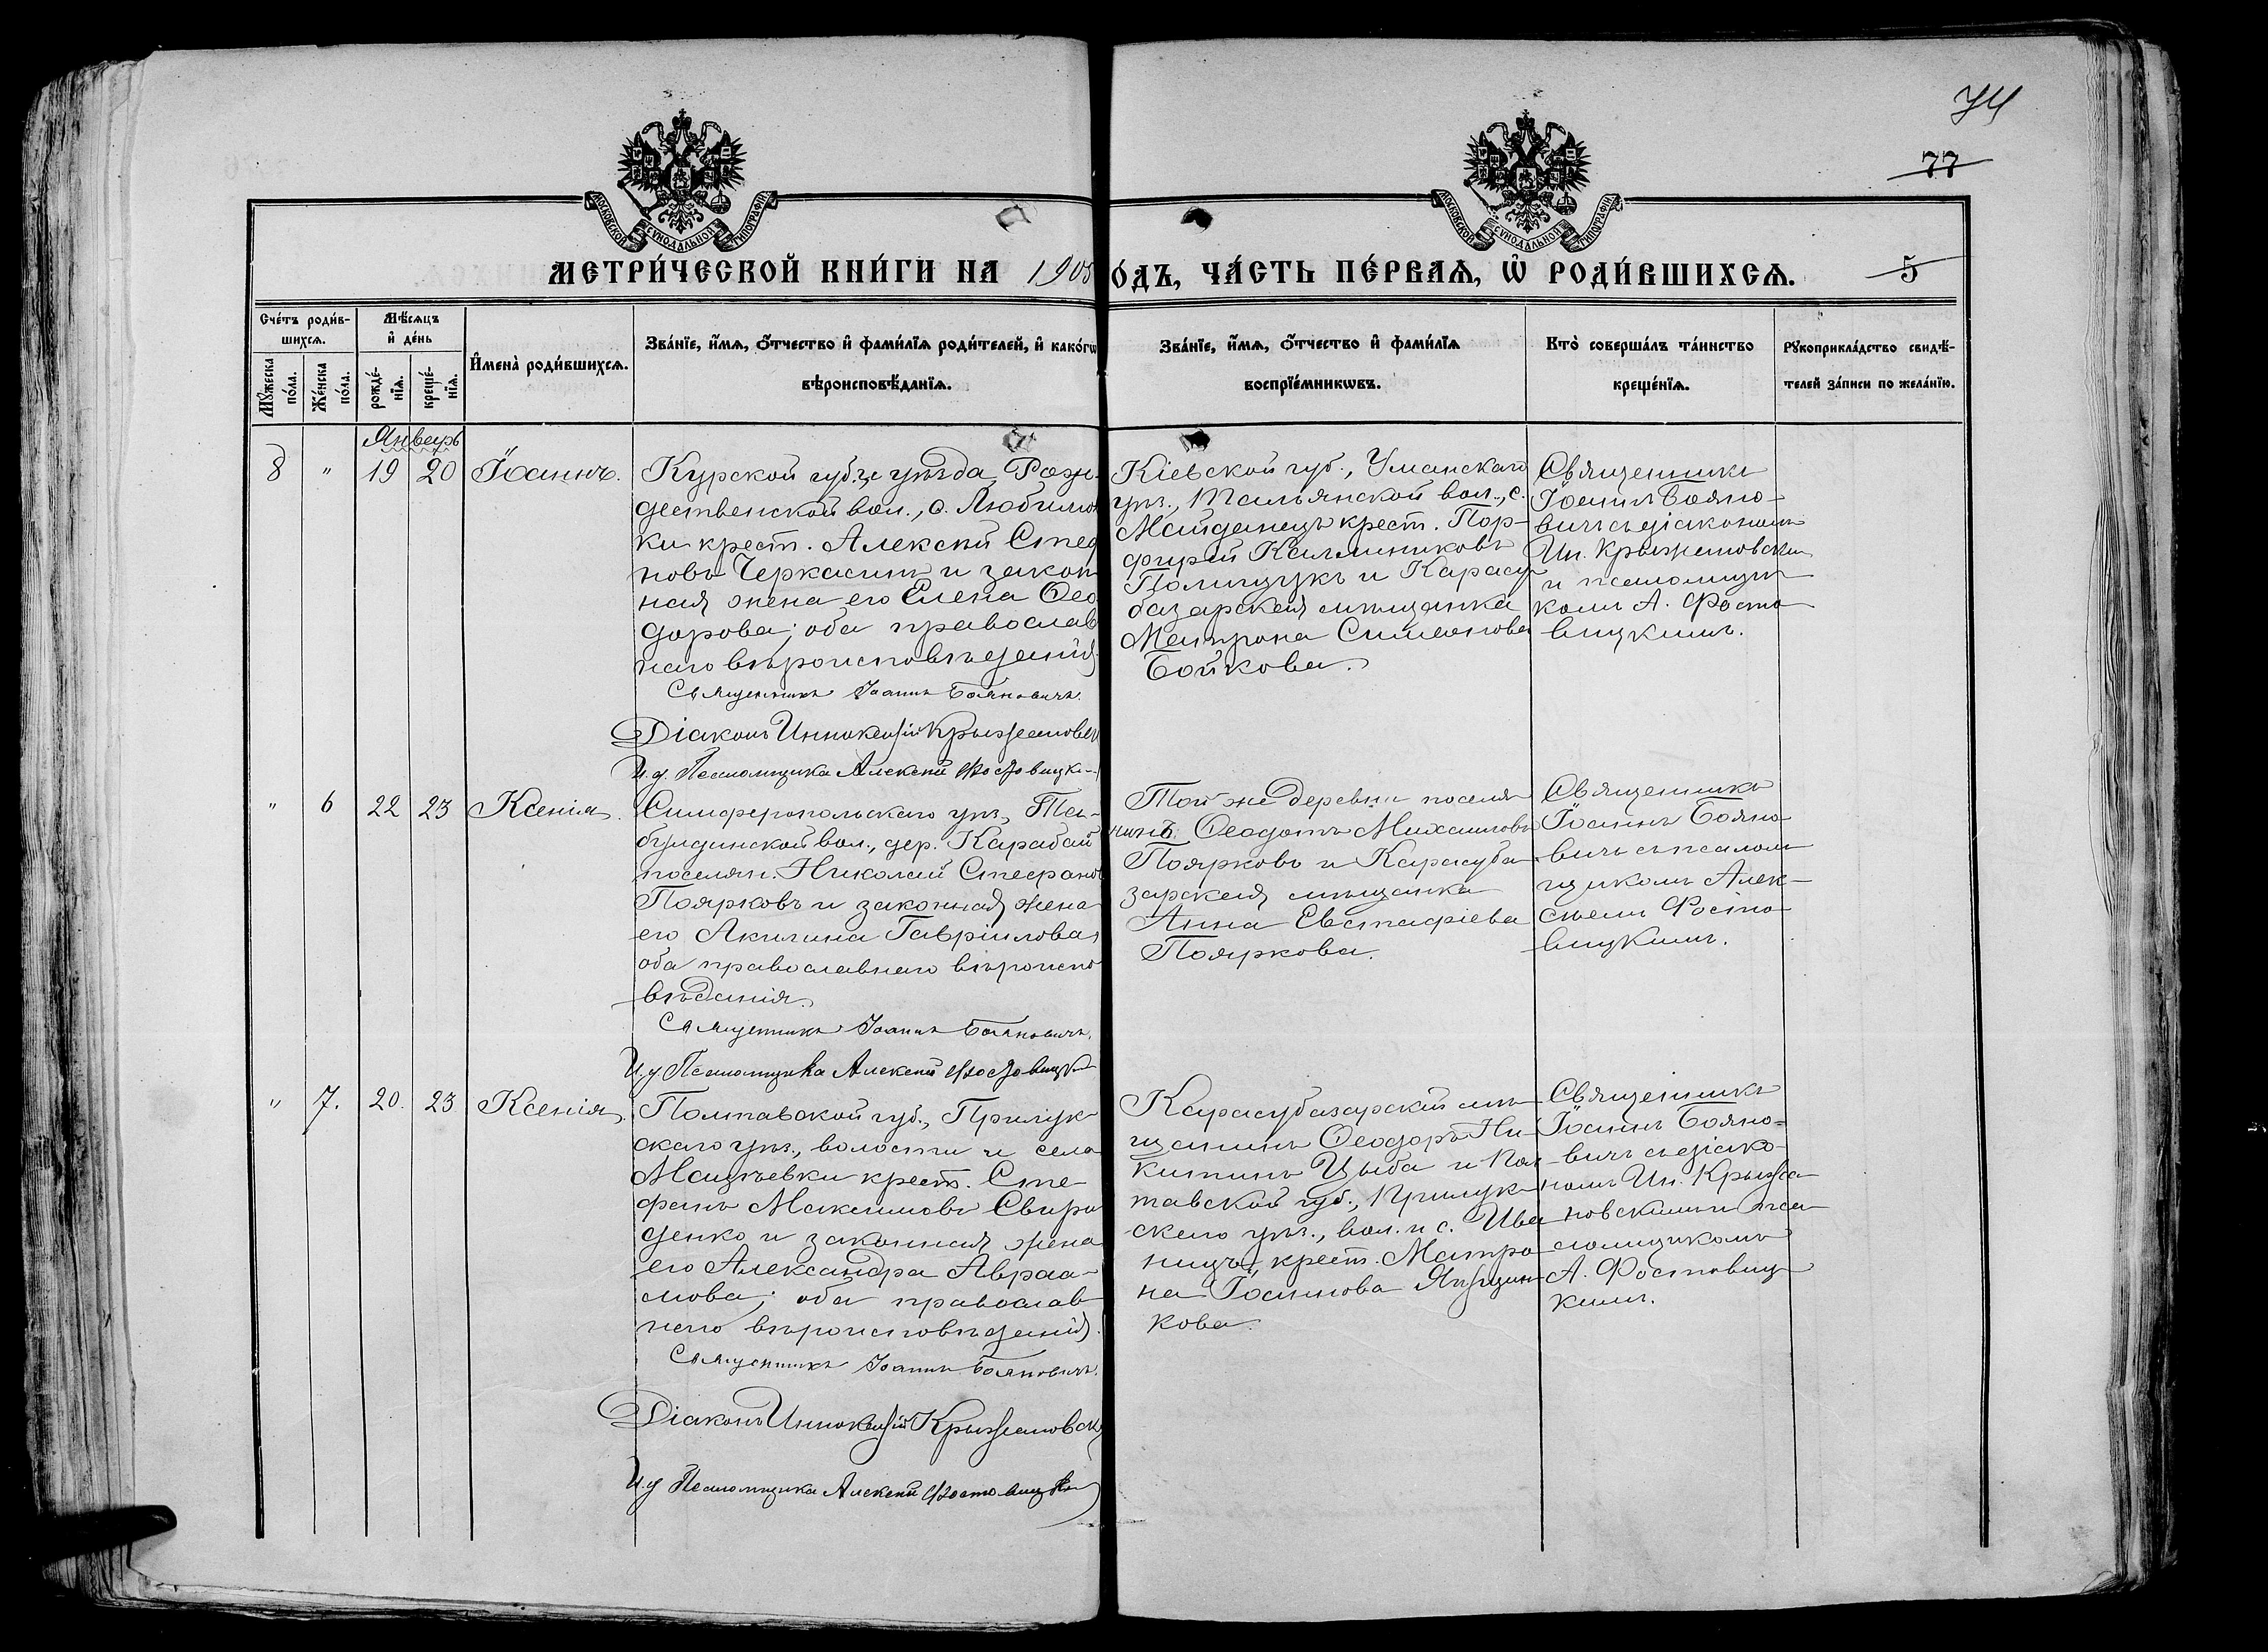 74
77
МОСКОВСКОЙ СѴНОДАЛЬНОЙ ТИПОГРАФІИ
МОСКОВСКОЙ СѴНОДАЛЬНОЙ ТИПОГРАФІИ
МЕТРИ́ЧЕСКОЙ КНИ́ГИ НА 1905
О́ДЪ, ЧА́СТЬ ПЕ́РВАѦ, Ѡ҆ РОДИ́ВШИХСѦ. 5
Сче́тъ роди́в-
шихсѧ.
Мꙋ́жеска по́ла.
Же́нска по́ла.
Мѣ́сѧцъ
и҆ де́нь
рожде́-нїѧ.
креще́-нїѧ.
И҆мена̀ роди́вшихсѧ.
Зва́нїе, и҆́мѧ, ѻ҆́тчество и҆ фами́лїѧ роди́телей, и҆ како́гѡ
вѣроисповѣ́данїѧ.
Зва́нїе, и҆́мѧ, ѻ҆́тчество и҆ фами́лїѧ
воспрїе́мникѡвъ.
Кто̀ соверша́лъ та́инство
креще́нїѧ.
Рꙋкоприкла́дство свидѣ́-
телей за́писи по жела́нїю.
Январь
8 " 19 20 Іоаннъ.
Курской губ. и уѣзда, Рож-
дественской вол., с. Любимов
ки крест. Алексѣй Стефа
новъ Черкасинъ и закон
ная жена его Елена Ѳео
дорова; оба православ
наго вѣроисповѣданія.
Священникъ Іоаннъ Бояновичъ.
Діаконъ Иннокентій Крыжановск
И.д. Псаломщика Алексѣй Фостовицкі
Кіевской губ., Уманскаго
уѣз., Тальянской вол., с.
Майданецъ крест. Пор-
фирій Каллиниковъ
Полищукъ и Карасу
базарская мѣщанка
Матрона Симеонова
Бойкова.
Священникъ
Іоаннъ Бояно-
вичъ съ діакономъ
Ин. Крыжановским
и псаломщи
комъ А. Фосто
вицкимъ.
" 6 22 23 Ксенія.
Симферопольскаго уѣз., Та-
булдинской вол., дер. Карабай
поселян. Николай Стефанов
Поярковъ и законная жена
его Акилина Гавріилова,
оба православнаго вѣроиспо
вѣданія.
Священникъ Іоаннъ Бояновичъ.
И.д Псаломщика Алексѣй Фостовицкі
Той же деревни поселя
нинъ Ѳеодотъ Михаиловъ
Поярковъ и Карасуба
зарская мѣщанка
Анна Евстафіева
Пояркова.
Священникъ
Іоаннъ Бояно
вичъ съ псалом
щикомъ Алек-
сѣемъ Фосто
вицкимъ.
" 7. 20. 23 Ксенія.
Полтавской губ., Прилук-
скаго уѣз., волости и села
Мацѣевки крест. Сте-
фанъ Максимовъ Свири
денко и законная жена
его Александра Авраа-
мова; оба православ
наго вѣроисповѣданія.
Священникъ Іоаннъ Бояновичъ.
Діаконъ Иннокентій Крыжановск
И.д Псаломщика Алексѣй Фостовицкі
Карасубазарскій мѣ
щанинъ Ѳеодоръ Ни-
китинъ Цыба и Пол
тавской губ., Прилук
скаго уѣз., вол. и с. Ива
ницъ, крест. Матро
на Іоаннова
кова.
Священникъ
Іоаннъ Бояно-
вичъ съ діако-
номъ Ин. Крыжа-
новскимъ и пса
ломщикомъ
А. Фостовиц
кимъ.